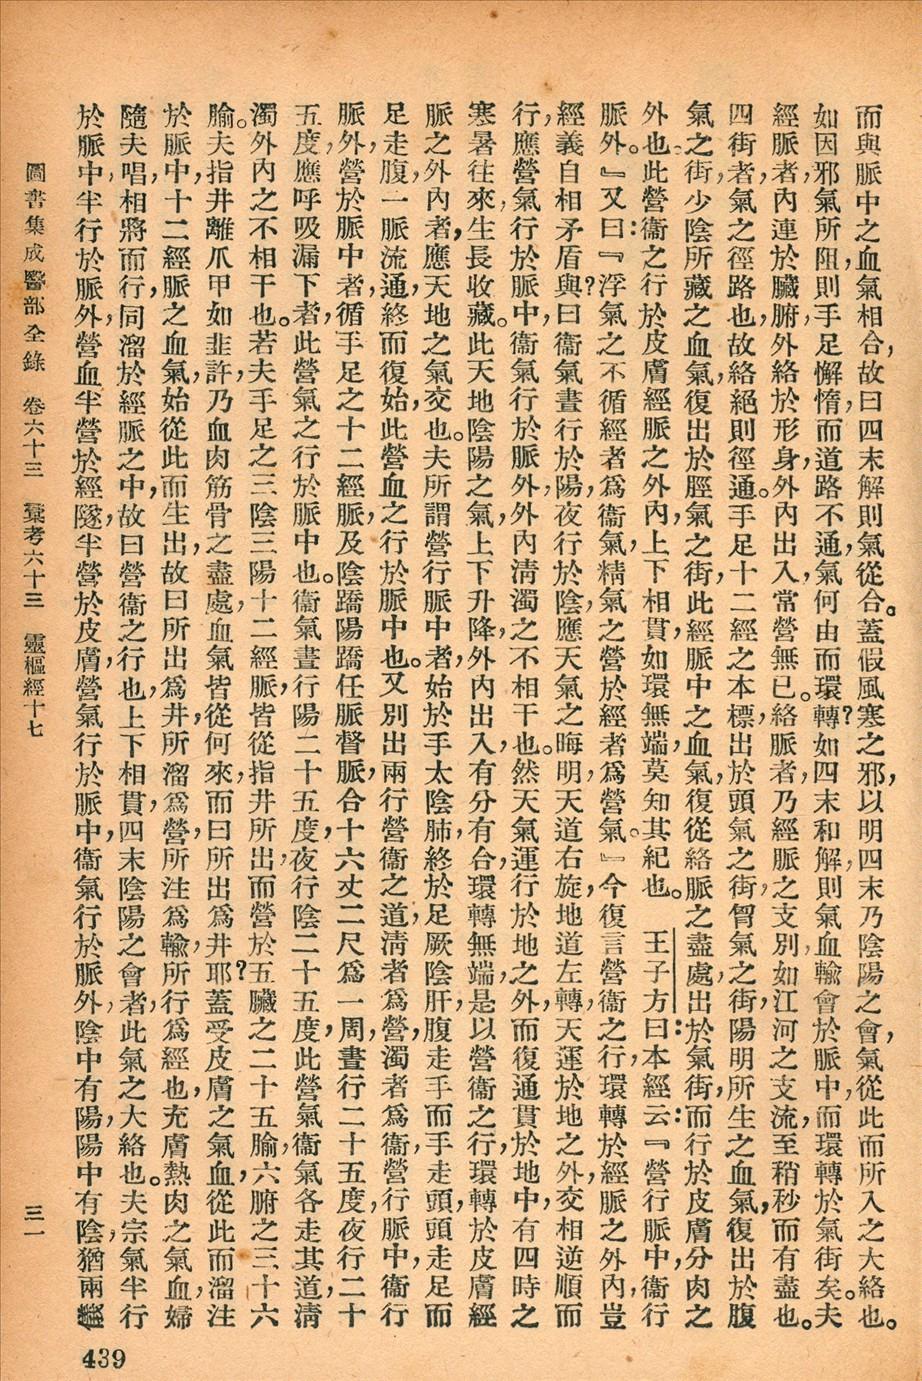 而與脈中之血氣相合，故曰四末解則氣從合。蓋假風寒之邪，以明四末乃陰陽之會，氣從此而所入之大絡也。
如因邪氣所阻，則手足懈惰，而道路不通，氣何由而環轉？如四末和解，則氣血輸會於脈中，而環轉於氣街矣。夫
經脈者，內連於臟腑，外絡於形身，外內出入，常營無已。絡脈者，乃經脈之支別，如江河之支流，至稍秒而有盡也。
四街者，氣之徑路也，故絡絕則徑通。手足十二經之本標，出於頭氣之街，胷氣之街，陽明所生之血氣，復出於腹
氣之街，少陰所藏之血氣，復出於脛氣之街，此經脈中之血氣，復從絡脈之盡處，出於氣街，而行於皮膚分肉之
外也。此營衞之行於皮膚經脈之外內，上下相貫，如環無端，莫知其紀也。　王子方曰：本經云：『營行脈中，衞行
脈外。』又曰：『浮氣之不循經者爲衞氣，精氣之營於經者爲營氣。』今復言營衞之行，環轉於經脈之外內，豈
經義自相矛盾與？曰：衞氣晝行於陽，夜行於陰，應天氣之晦明，天道右旋，地道左轉，天運於地之外，交相逆順而
行，應營氣行於脈中，衞氣行於脈外，外內淸濁之不相干也。然天氣運行於地之外，而復通貫於地中，有四時之
寒暑往來，生長收藏。此天地陰陽之氣，上下升降，外內出入，有分有合，環轉無端，是以營衞之行，環轉於皮膚經
脈之外內者，應天地之氣交也。夫所謂營行脈中者，始於手太陰肺，終於足厥陰肝，腹走手而手走頭，頭走足而
足走腹，一脈流通，終而復始，此營血之行於脈中也。又別出兩行營衞之道，淸者爲營，濁者爲衞，營行脈中，衞行
脈外，營於脈中者，循手足之十二經脈，及陰蹻陽蹻任脈督脈，合十六丈二尺爲一周，晝行二十五度，夜行二十
五度，應呼吸漏下者，此營氣之行於脈中也。衞氣晝行陽二十五度，夜行陰二十五度，此營氣衞氣，各走其道，淸
濁外內之不相干也。若夫手足之三陰三陽十二經脈，皆從指井所出，而營於五臟之二十五腧，六腑之三十六
腧。夫指井離爪甲如韭許，乃血肉筋骨之盡處，血氣皆從何來，而曰所出爲井耶？蓋受皮膚之氣血，從此而溜注
於脈中，十二經脈之血氣，始從此而生出，故曰所出爲井，所溜爲營，所注爲輸，所行爲經也。充膚熱肉之氣血，婦
隨夫唱，相將而行，同溜於經脈之中，故曰營衞之行也，上下相貫，四末陰陽之會者，此氣之大絡也。夫宗氣半行
於脈中，半行於脈外，營血半營於經隧，半營於皮膚，營氣行於脈中，衞氣行於脈外，陰中有陽，陽中有陰，猶兩儀
圖書集成醫部全錄　卷六十三　彙考六十三　靈樞經十七　三一
439